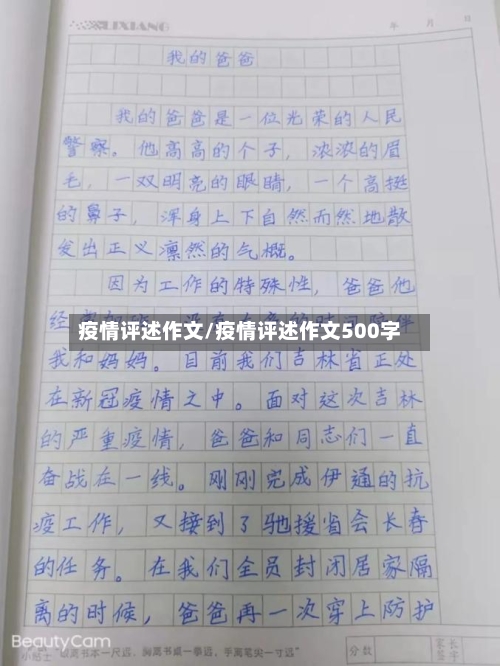 LIXIANG
年 月 日
我的爸爸
我的爸爸是一位光荣的人民
警察。他高高的个子，浓浓的眉
毛，一双明亮的眼睛，一个高挺
的鼻子，浑身上下自然而然地散
发出正义凛然的气概。
因为工作的特殊性，爸爸他
疫情评述作文/疫情评述作文500字
我和妈妈。目前我们吉林省正处
在新冠疫情之中。面对这次吉林
的严重疫情，爸爸和同志们一直
奋战在一线。刚刚完成伊通的抗
疫工作，又接到了驰援省会长春
的任务。在我们全员封闭居家隔
离的时候，爸爸再一次穿上防护
BeautyCam
小贴士 眼离书本一尺远，胸离书桌一拳远，手离笔尖一寸远
分数
家长
签字